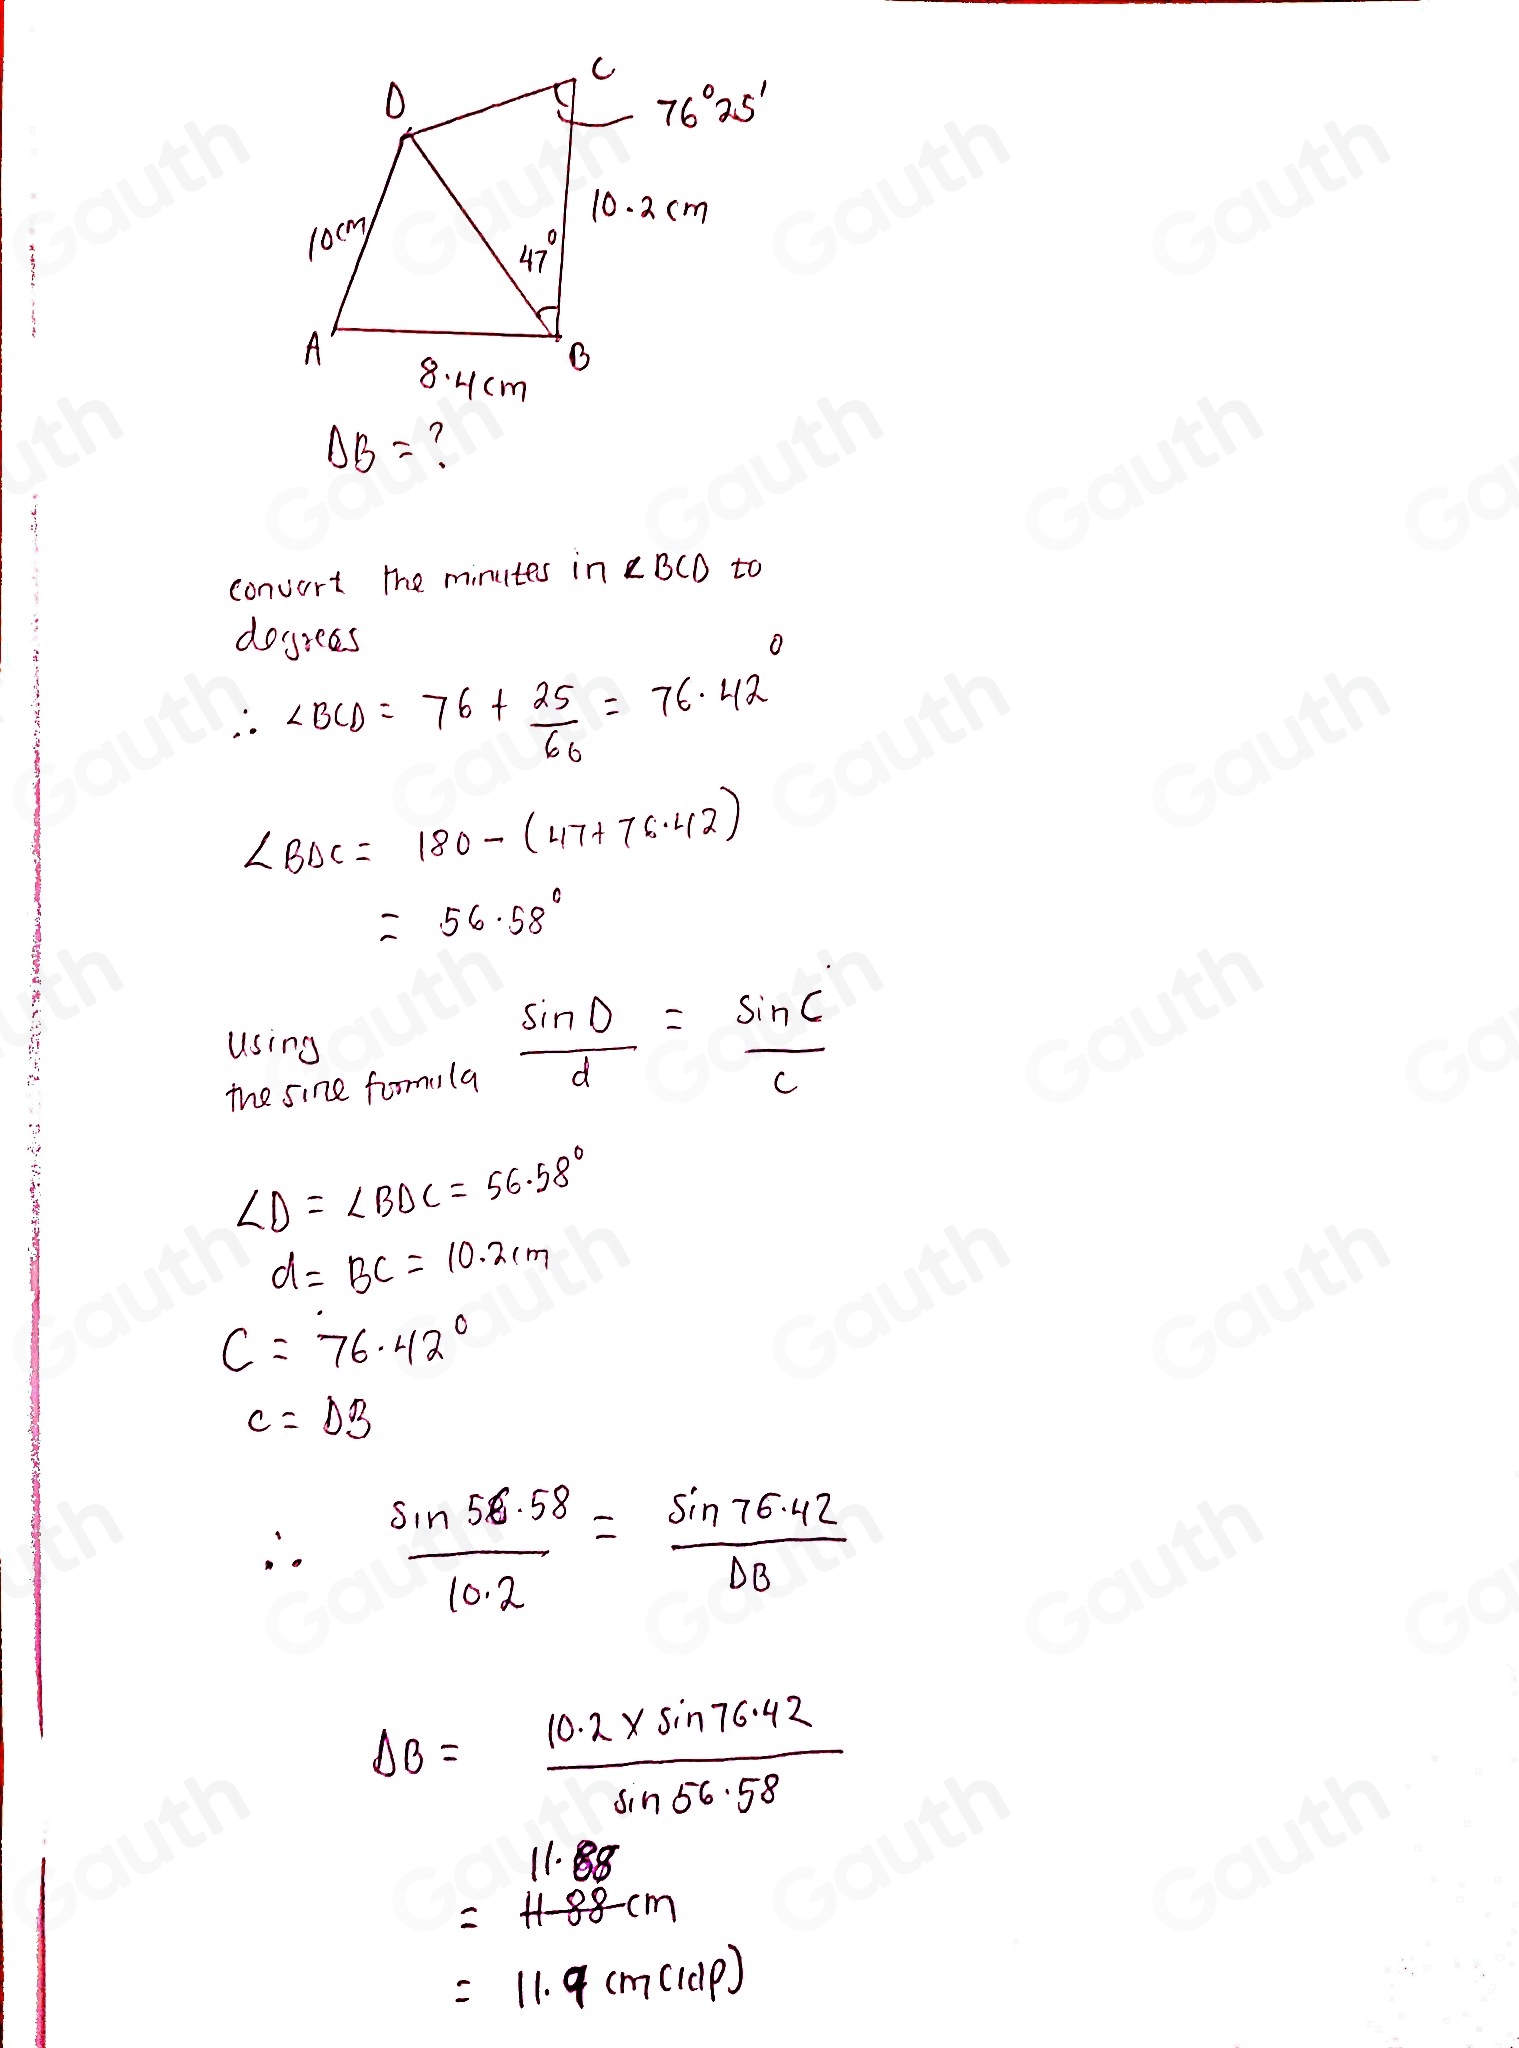 D
C
76°25'
10cm
10.2cm
47°
A
B
8.4cm
DB = ?
convert the minutes in ∠BCD to
degrees
∴ ∠BCD = 76 + 25/60 = 76.42°
∠BDC = 180 - (47+76.42)
= 56.58°
Using
the sine formula sin D/d = sin C/c
∠D = ∠BDC = 56.58°
d = BC = 10.2cm
C = 76.42°
c = DB
∴ sin 56.58/10.2 = sin 76.42/DB
DB = 10.2 × sin 76.42/sin 56.58
11.88
= 11.88 cm
= 11.9 cm (1dp)
Gauth